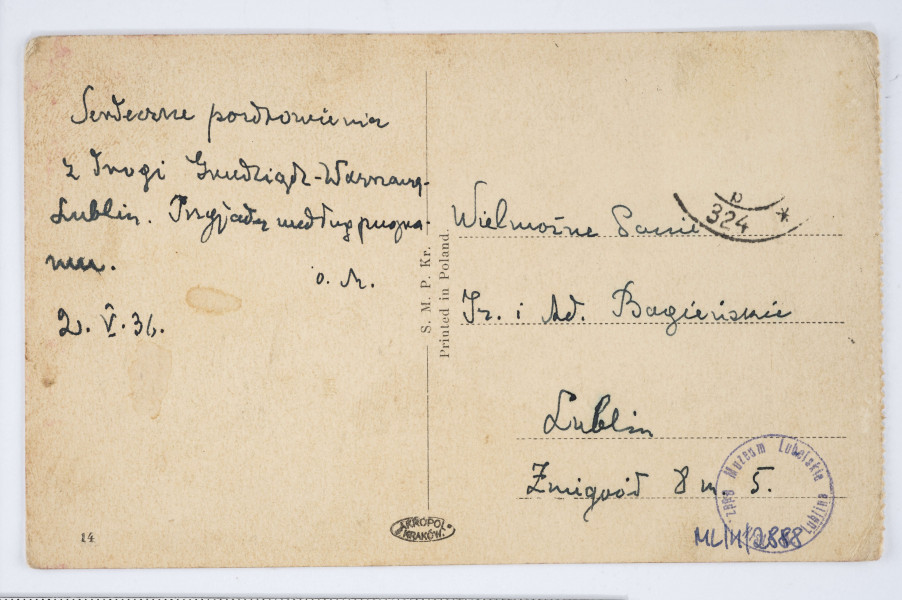 Serdeczne pozdrowienia
z drogi Grudziądz-Warszawa-
Lublin. Przyjadę według progra-
mu.
2. V. 36.
S. M. P. Kr.
Printed in Poland.
p
324 *
Wielmożne Panie
Iz. i Ad. Bagieńskie
Lublin
Żmigród 8 m 5.
Muzeum Lubelskie
ML/H/2888
AKROPOL
KRAKÓW.
14